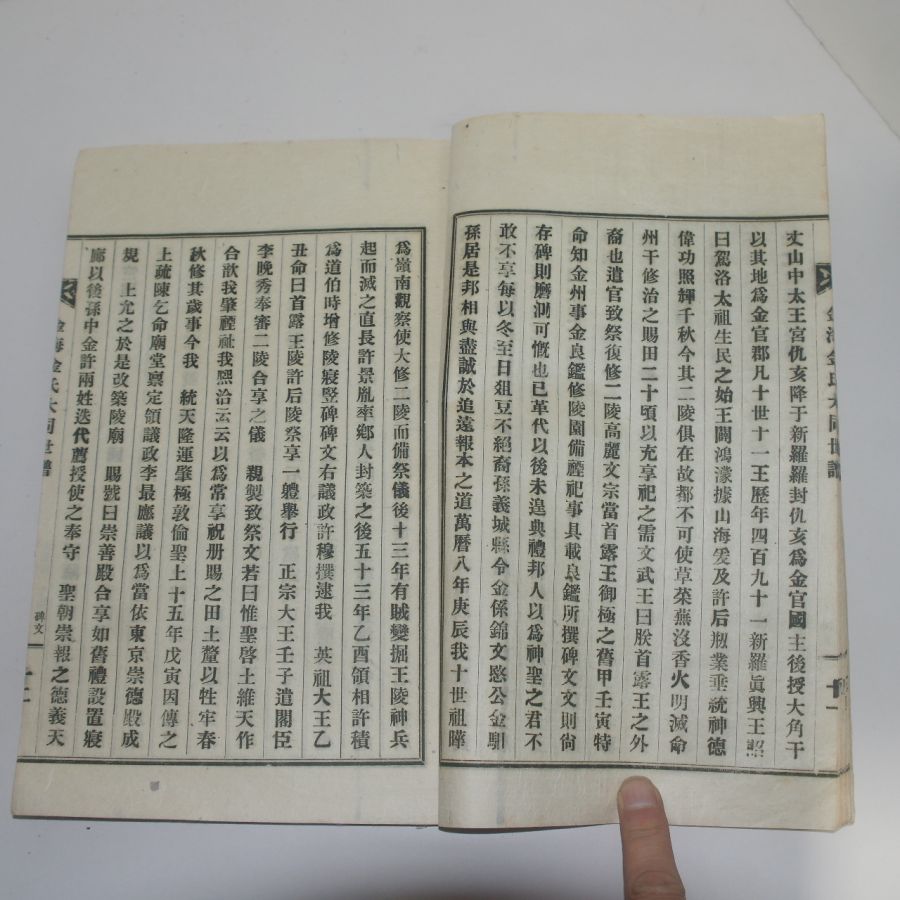 丈山中太王宮仇亥降于新羅羅封仇亥爲金官國主後授大角干
以其地爲金官郡凡十世十一王歷年四百九十一新羅眞興王
曰駕洛太祖生民之始王闢鴻濛據山海爰及許后刱業垂統神德
偉功照輝千秋今其二陵俱在故都不可使草萊蕪沒香火明滅命
州干修治之賜田二十頃以充享祀之需文武王曰朕首露王之外
裔也遣官致祭復修二陵高麗文宗當首露王御極之舊甲壬寅特
命知金州事金良鑑修陵園備禋祀事具載良鑑所撰碑文文則尙
存碑則磨泐可慨也已革代以後未遑典禮邦人以爲神聖之君不
敢不享每以冬至日俎豆不絕裔孫義城縣令金係錦文愍公金馹
孫居是邦相與盡誠於追遠報本之道萬曆八年庚辰我十世祖曄
爲嶺南觀察使大修二陵而備祭儀後十三年有賊變掘王陵神兵
起而滅之直長許景胤率鄉人封築之後五十三年乙酉領相許積
爲道伯時增修陵寢竪碑碑文右議政許穆撰逮我 英祖大王乙
丑命曰首露王陵許后陵祭享一軆舉行 正宗大王壬子遣閣臣
李晚秀奉審二陵合享之儀 親製致祭文若曰惟聖啓土維天作
合歆我肇禋祉我熙洽云云以爲常享祝册賜之田土釐以牲牢春
秋修其歲事今我 統天隆運肇極敦倫聖上十五年戊寅因傳之
上疏陳乞命廟堂稟定領議政李最應議以爲當依東京崇德殿成
規 上允之於是改築陵廟 賜號曰崇善殿合享如舊禮設置寢
廊以後孫中金許兩姓迭代薦授使之奉守 聖朝崇報之德義天
金海金氏大同世譜
碑文
十一